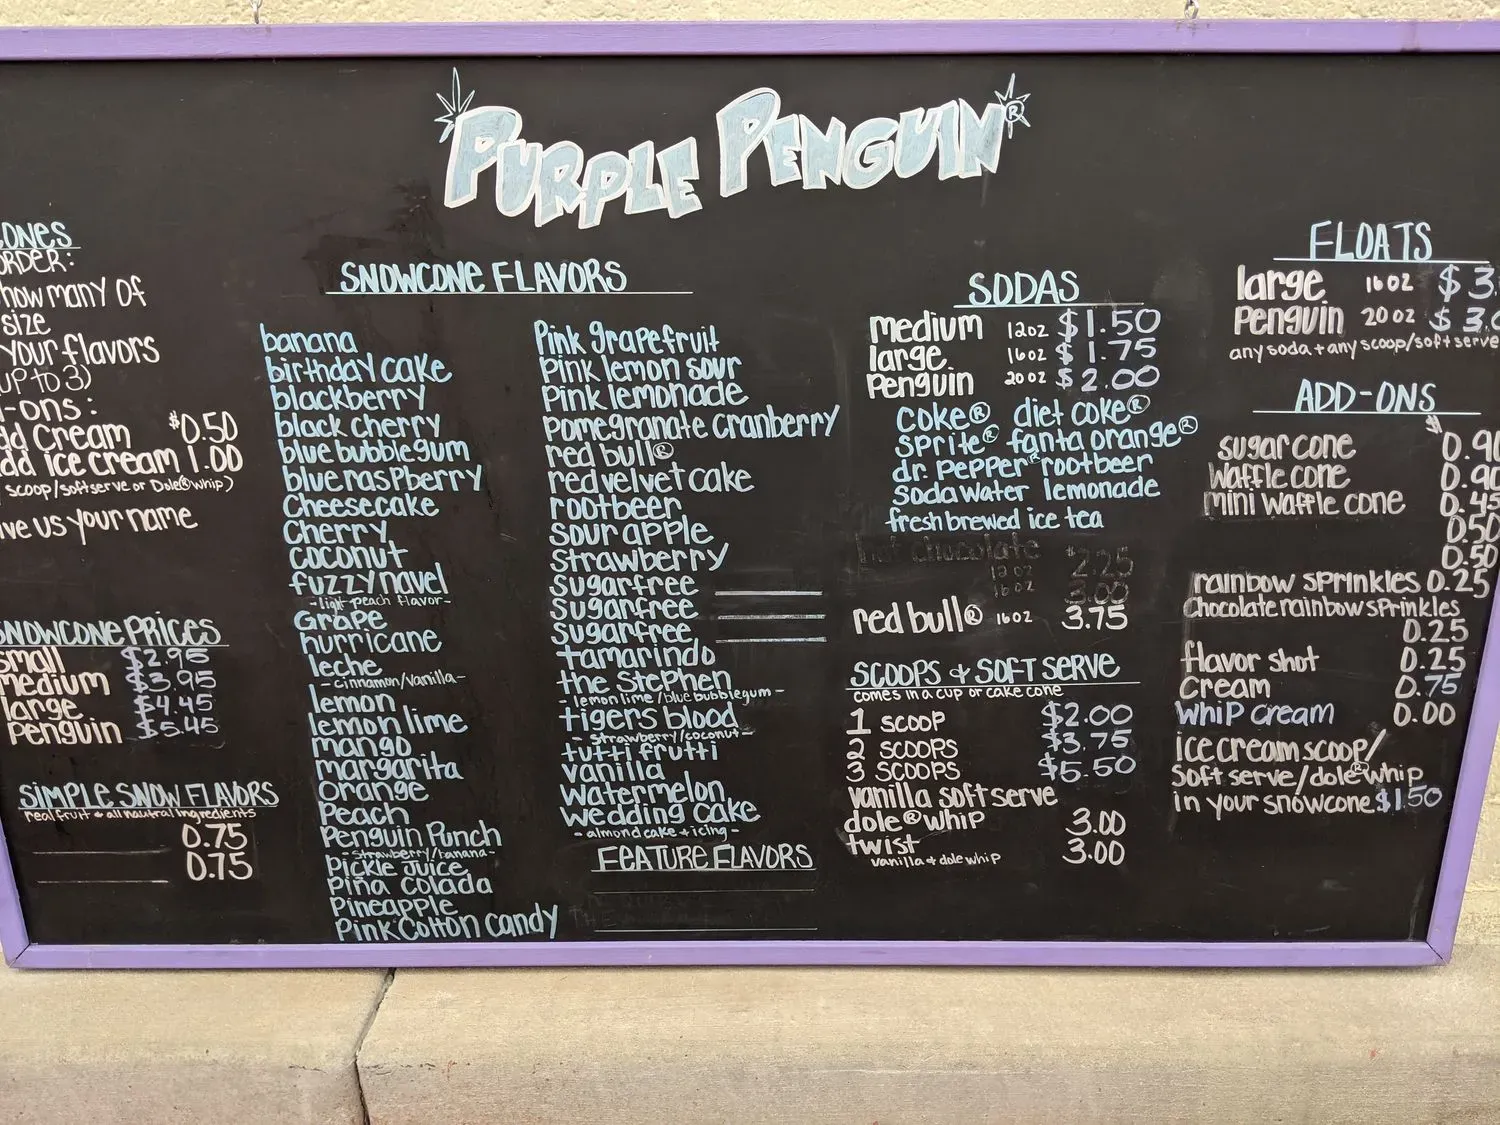 PURPLE PENGUIN®
ORDER:
how many of
size
your flavors
up to 3)
add cream $0.50
add ice cream 1.00
scoop/softserve or Dole® whip)
us your name
SNOWCONE PRICES
small $2.95
medium $3.95
large $4.45
Penguin $5.45
SIMPLE SNOW FLAVORS
real fruit & all nautral ingredients
0.75
0.75
SNOWCONE FLAVORS
banana
birthday cake
blackberry
black cherry
blue bubblegum
blue raspberry
Cheesecake
Cherry
coconut
fuzzy navel
-light peach flavor-
Grape
hurricane
leche
-cinnamon/vanilla-
lemon
lemon lime
mango
margarita
orange
Peach
Penguin Punch
-strawberry/banana-
Pickle Juice
Piña colada
Pineapple
Pink Cotton candy
Pink grapefruit
Pink lemon sour
Pink lemonade
pomegranate cranberry
red bull®
red velvet cake
rootbeer
sour apple
strawberry
sugarfree
sugarfree
sugarfree
tamarindo
the Stephen
-lemon lime/blue bubblegum-
tigers blood
-strawberry/coconut-
tutti frutti
vanilla
watermelon
wedding cake
-almond cake + icing-
FEATURE FLAVORS
SODAS
medium 12oz $1.50
large 16oz $1.75
Penguin 20oz $2.00
coke® diet coke®
sprite® fanta orange®
dr. pepper® rootbeer
soda water lemonade
fresh brewed ice tea
hot chocolate $2.25
12oz
16oz 3.00
red bull® 16oz 3.75
SCOOPS & SOFT SERVE
comes in a cup or cake cone
1 scoop $2.00
2 scoops $3.75
3 scoops $5.50
vanilla soft serve
dole® whip 3.00
twist 3.00
vanilla + dole whip
FLOATS
large 16oz $3.
Penguin 20oz $3.
any soda + any scoop/soft serve
ADD-ONS
sugar cone $0.90
waffle cone 0.90
mini waffle cone 0.45
0.50
0.50
rainbow sprinkles 0.25
chocolate rainbow sprinkles
0.25
flavor shot 0.25
cream 0.75
whip cream 0.00
ice cream scoop/
soft serve/dole® whip
in your snowcone $1.50